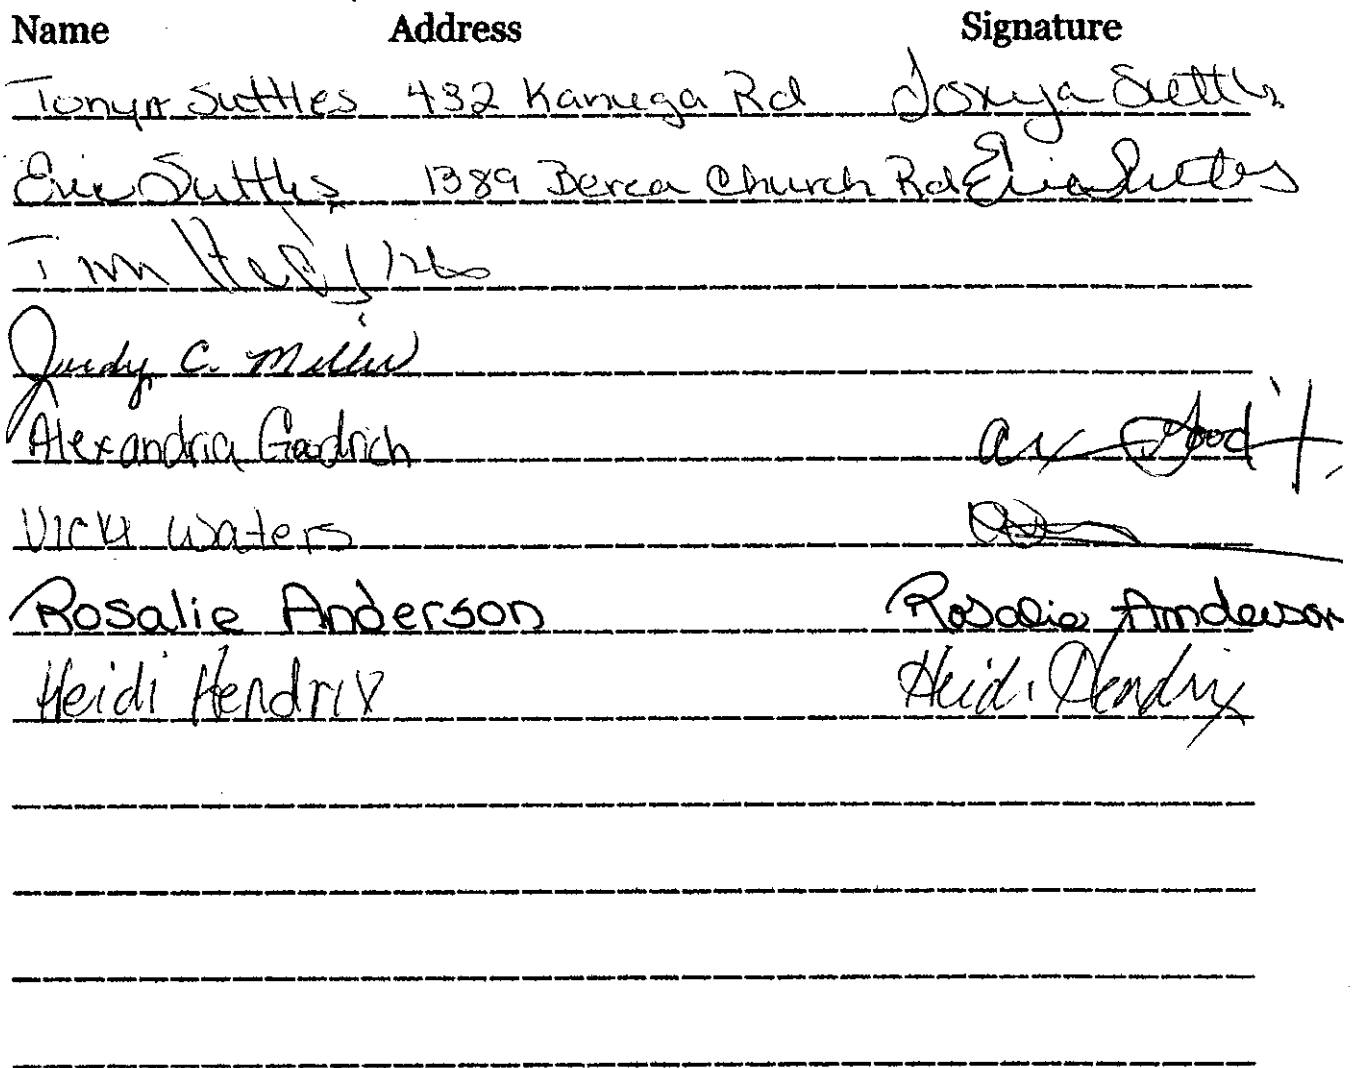 Name Address Signature
Tonya Suttles 432 Kanuga Rd Tonya Suttles
Eric Suttles 1389 Berea Church Rd Eric Suttles
Tim
Judy C. Miller
Alexandria Goodrich
Vicki Waters
Rosalie Anderson Rosalie Anderson
Heidi Hendrix Heidi Hendrix